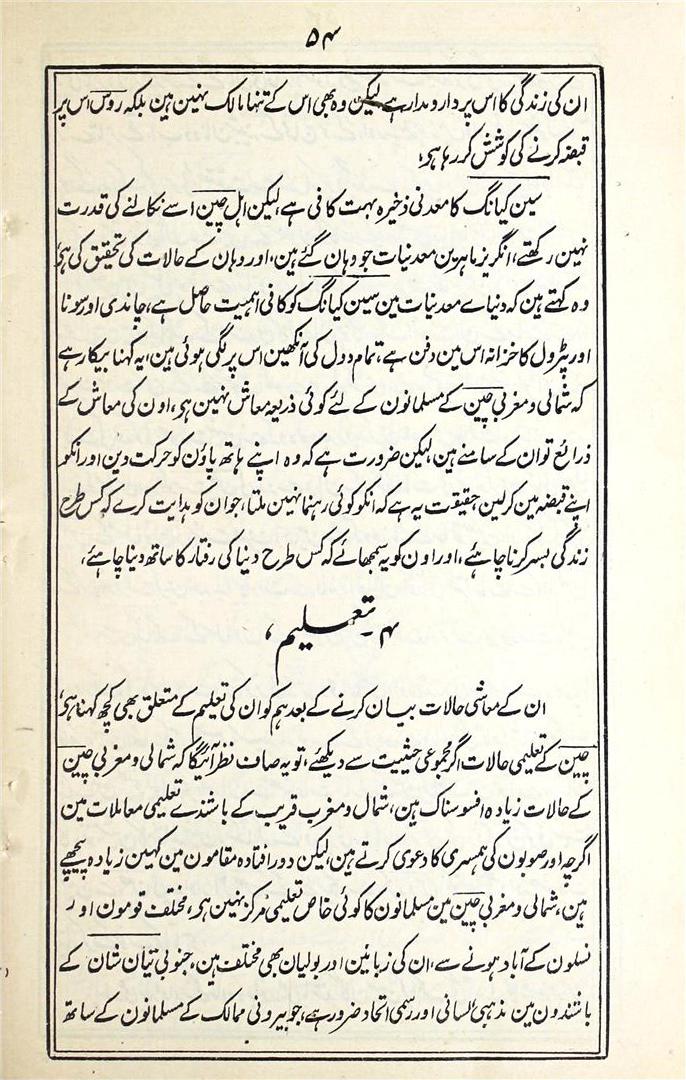 ۵۴
ان کی زندگی کا اس پر دار و مدار ہے لیکن وہ بھی اس کے تنہا مالک نہین ہین بلکہ روس اس پر
قبضہ کرنے کی کوشش کر رہا ہی،
سین کیانگ کا معدنی ذخیرہ بہت کافی ہے، لیکن اہل چین اسے نکالنے کی قدرت
نہین رکھتے، انگریز ماہرین معدنیات جو وہان گئے ہین، اور وہان کے حالات کی تحقیق کی ہی،
وہ کہتے ہین کہ دنیاے معدنیات مین سین کیانگ کو کافی اہمیت حاصل ہے، چاندی اور سونا
اور پٹرول کا خزانہ اس مین دفن ہے، تمام دول کی آنکھین اس پر لگی ہوئی ہین، یہ کہنا بیکار ہے
کہ شمالی و مغربی چین کے مسلمانون کے لئے کوئی ذریعہ معاش نہین ہی، اون کی معاش کے
ذرائع تو ان کے سامنے ہین، لیکن ضرورت ہے کہ وہ اپنے ہاتھ پاؤن کو حرکت دین اور انکو
اپنے قبضہ مین کر لین حقیقت یہ ہے کہ انکو کوئی رہنما نہین ملتا، جو ان کو ہدایت کرے کہ کس طرح
زندگی بسر کرنا چاہئے، اور اون کو یہ سمجھائے کہ کس طرح دنیا کی رفتار کا ساتھ دینا چاہئے،
۴۔ تعلیم،
ان کے معاشی حالات بیان کرنے کے بعد ہم کو ان کی تعلیم کے متعلق بھی کچھ کہنا ہی،
چین کے تعلیمی حالات اگر مجموعی حیثیت سے دیکھئے، تو یہ صاف نظر آئیگا کہ شمالی و مغربی چین
کے حالات زیادہ افسوسناک ہین، شمال و مغرب قریب کے باشندے تعلیمی معاملات مین
اگرچہ اور صوبون کی ہمسری کا دعوی کرتے ہین، لیکن دور افتادہ مقامون مین کہین زیادہ پیچھے
ہین، شمالی و مغربی چین مین مسلمانون کا کوئی خاص تعلیمی مرکز نہین ہی، مختلف قومون اور
نسلون کے آباد ہونے سے، ان کی زبانین اور بولیان بھی مختلف ہین، جنوبی تیان شان کے
باشندون مین مذہبی لسانی اور رسمی اتحاد ضرور ہے، جو بیرونی ممالک کے مسلمانون کے ساتھ